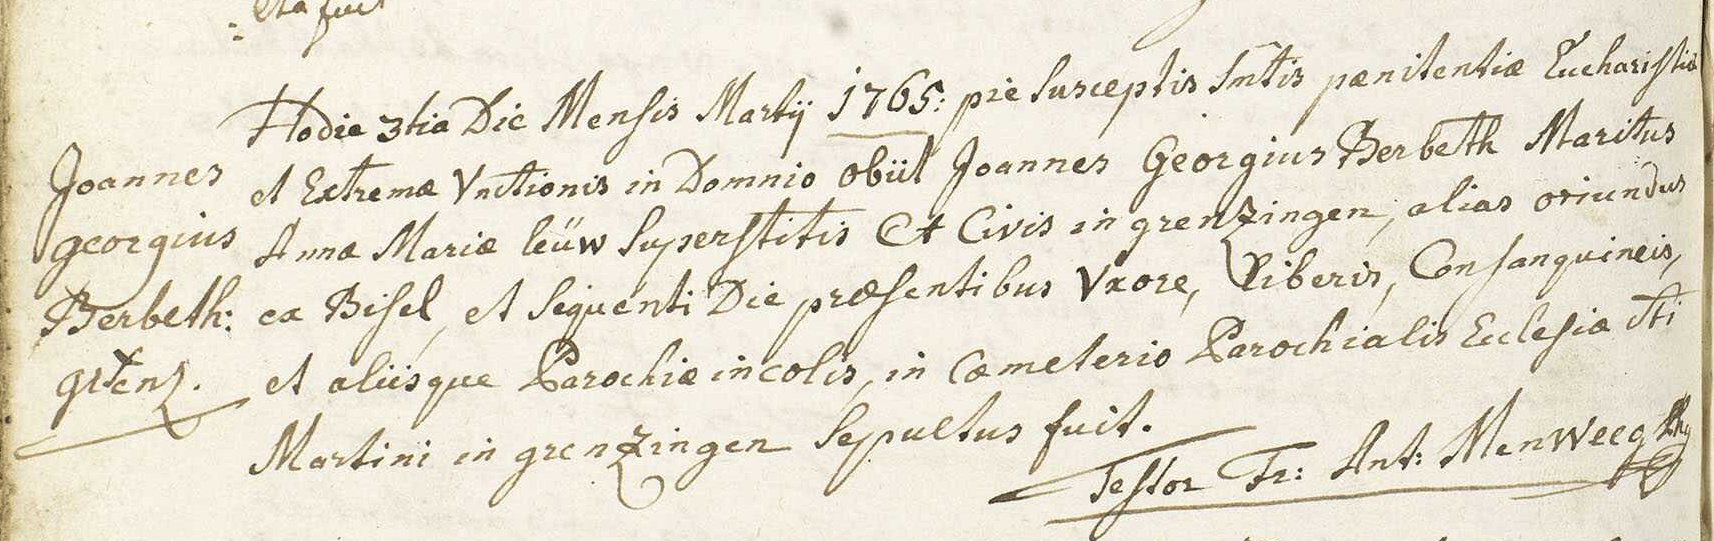 eta fuit
Hodie 3tia Die Mensis Martÿ 1765: pie Susceptis Smtis pænitentiæ Eucharistiæ
et Extremæ Vnctionis in Domnio obiit Joannes Georgius Berbeth Maritus
Annæ Mariæ leüw Superstitis Et Civis in grenzingen, alias oriundus
ex Bisel, et Sequenti Die præsentibus Vxore, Liberis, Consanguineis,
et aliisque Parochiæ incolis, in Cæmeterio Parochialis Ecclesiæ Sti
Martini in grenzingen Sepultus fuit.
Testor Fr: Ant: Menweeg
Joannes
georgius
Berbeth:
grenz.